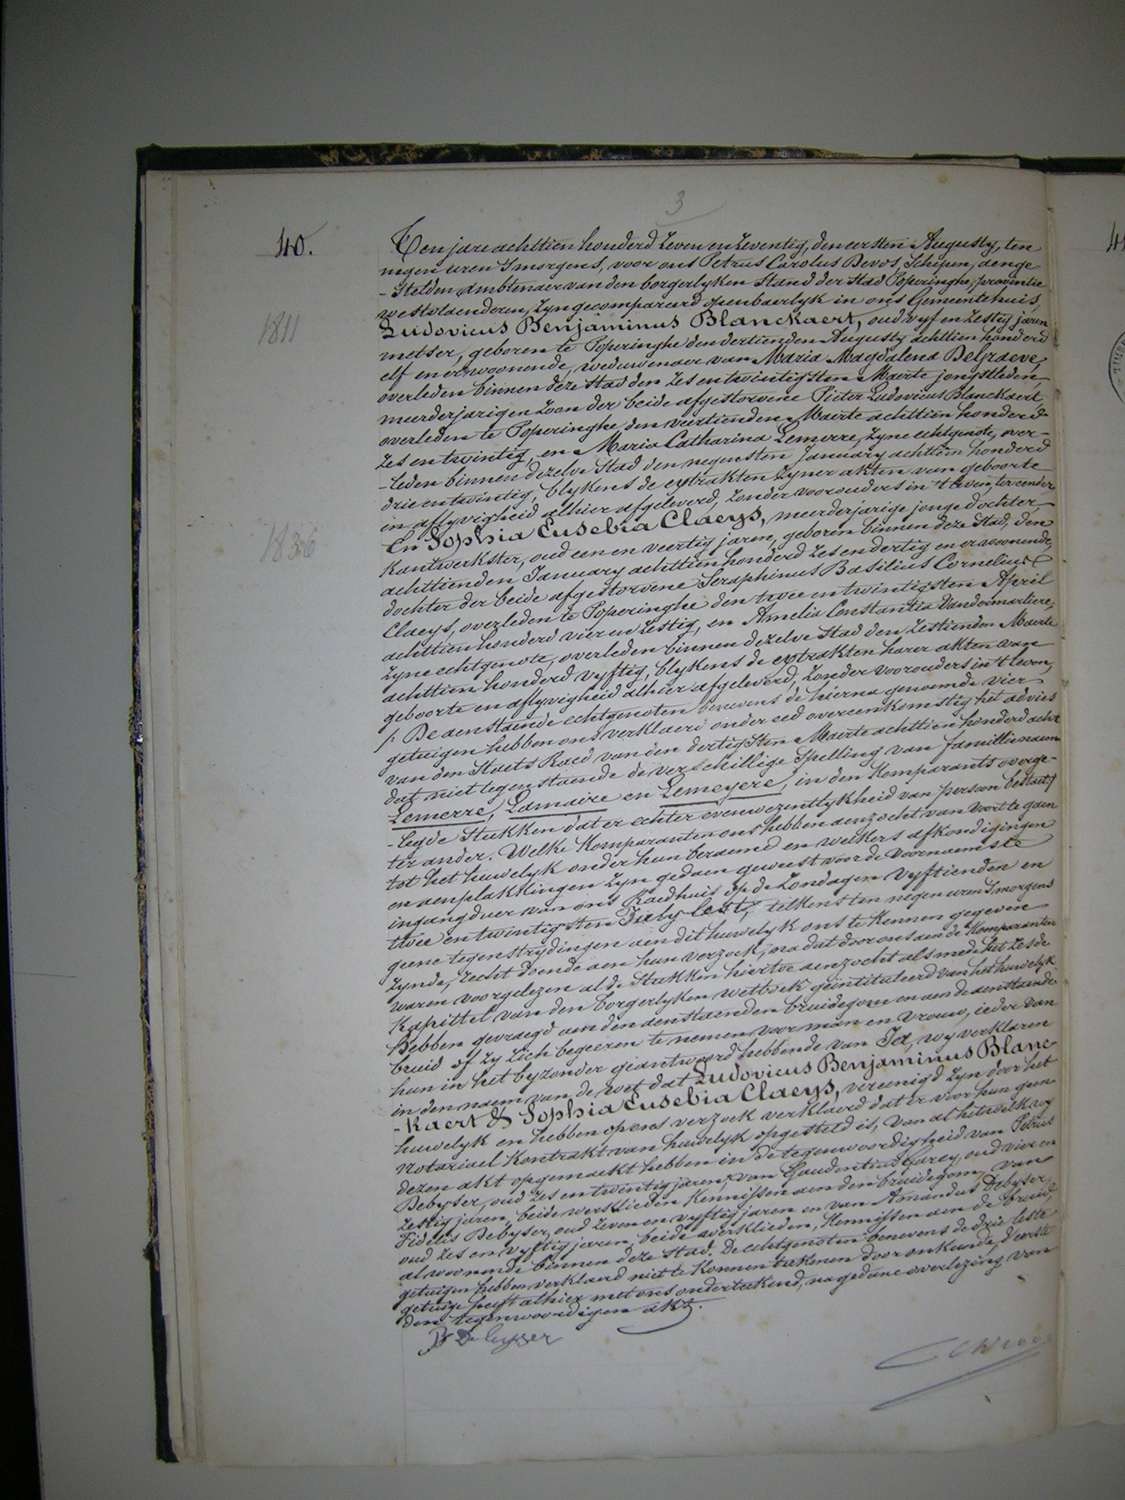 3
40.
Ten jare achttien honderd Zeven en Zeventig, den eersten Augusty, ten
negen uren 's morgens, voor ons Petrus Carolus Devos, Schepen, denge
-Stelden Ambtenaer van den borgerlyken Stand der Stad Poperinghe, provintie
westvlaenderen, zyn gecompareerd openbaerlyk in ons Gemeentehuis,
1811
Ludovicus Benjaminus Blanckaert, oud vyf en Zestig jaren
metser, geboren te Poperinghe den dertienden Augusty achttien honderd
elf en er woonende, weduwenaer van Maria Magdalena Delgraeve,
overleden binnen deze stad den Zes en twintigsten Maerte jongstleden,
meerderjarigen Zoon der beide afgestorvene Pieter Ludovicus Blanckaert,
overleden te Poperinghe den veertienden Maerte achttien honderd
Zes en twintig, en Maria Catharina Lemerre, zyne echtgenote, over-
-leden binnen dezelve Stad den negensten January achttien honderd
drie en twintig, blykens de extrakten zyner akten van geboorte
en aflyvigheid alhier afgeleverd, Zonder voorouders in 't leven, ter eendere
En Sophia Eusebia Claeys, meerderjarige jonge dochter,
1836
Kantwerkster, oud een en veertig jaren, geboren binnen deze Stad, den
achttienden January achttien honderd Zes en dertig en er woonende,
dochter der beide afgestorvene Seraphinus Basilius Cornelius
Claeys, overleden te Poperinghe den twee en twintigsten April
achttien honderd vier en Zestig, en Amelia Constantia Vandermarliere,
zyne echtgenote, overleden binnen dezelve Stad den Zestienden Maerte
achttien honderd vyftig, blykens de extrakten harer akten van
geboorte en aflyvigheid alhier afgeleverd, Zonder voorouders in 't leven,
De aenstaende echtgenoten benevens de hierna genoemde vier
getuigen hebben ons verklaerd onder eed overeenkomstig het advies
van den Staets Raed van den dertigsten Maerte achttien honderd acht
dat niettegenstaende de verschillige Spelling van famillienaem
Lemerre, Lamaire en Lemeyere, in den Komparants overge-
-legde Stukken dat er echter evenwezentlykheid van persoon bestaet,
ter ander. Welke Komparanten ons hebben aenzocht van voort te gaen
tot het huwelyk onder hun beraemd en welkers afkondigingen
en aenplakkingen zyn gedaen geweest voor de voornaemste
ingangdeur van ons Raedhuis op de Zondagen vyftienden en
twee en twintigsten July lest, telkens ten negen uren 's morgens
geene tegenstrydingen aen dit huwelyk ons te kennen gegeven
zynde, recht doende aen hun verzoek, na dat door ons aen de Komparanten
waren voorgelezen al de Stukken hiertoe aenzocht als mede het Zesde
Kapittel van den borgerlyken wetboek geïntituleerd van het huwelyk
Hebben gevraegd aen den aenstaenden bruidegom en aen de aenstaende
bruid of zy zich begeeren te nemen voor man en vrouw, ieder van
hun in het byzonder geantwoord hebbende van Ja, wy verklaren
in den naem van de wet dat Ludovicus Benjaminus Blanc-
-Kaert & Sophia Eusebia Claeys, vereenigd zyn door het
huwelyk en hebben op ons verzoek verklaerd dat er voor hun geen
Notariael Kontrakt van huwelyk opgesteld is, van al hetwelk wy
dezen akt opgemaekt hebben in de tegenwoordigheid van Petrus
Debyser, oud Zes en twintig jaren, van Gaudentius Garey, oud vier en
Zestig jaren, beide werklieden, kennissen aen den bruidegom, van
Fidelis Debyser, oud Zeven en vyftig jaren en van Amandus Debyser,
oud Zes en vyftig jaren, beide werklieden, kennissen aen de bruid,
al woonende binnen deze Stad. De echtgenoten benevens de drie leste
getuigen hebben verklaerd niet te konnen teekenen door onkunde, d'eerste
getuige heeft alhier met ons onderteekend, na gedane overlezing van
den tegenwoordigen akt.